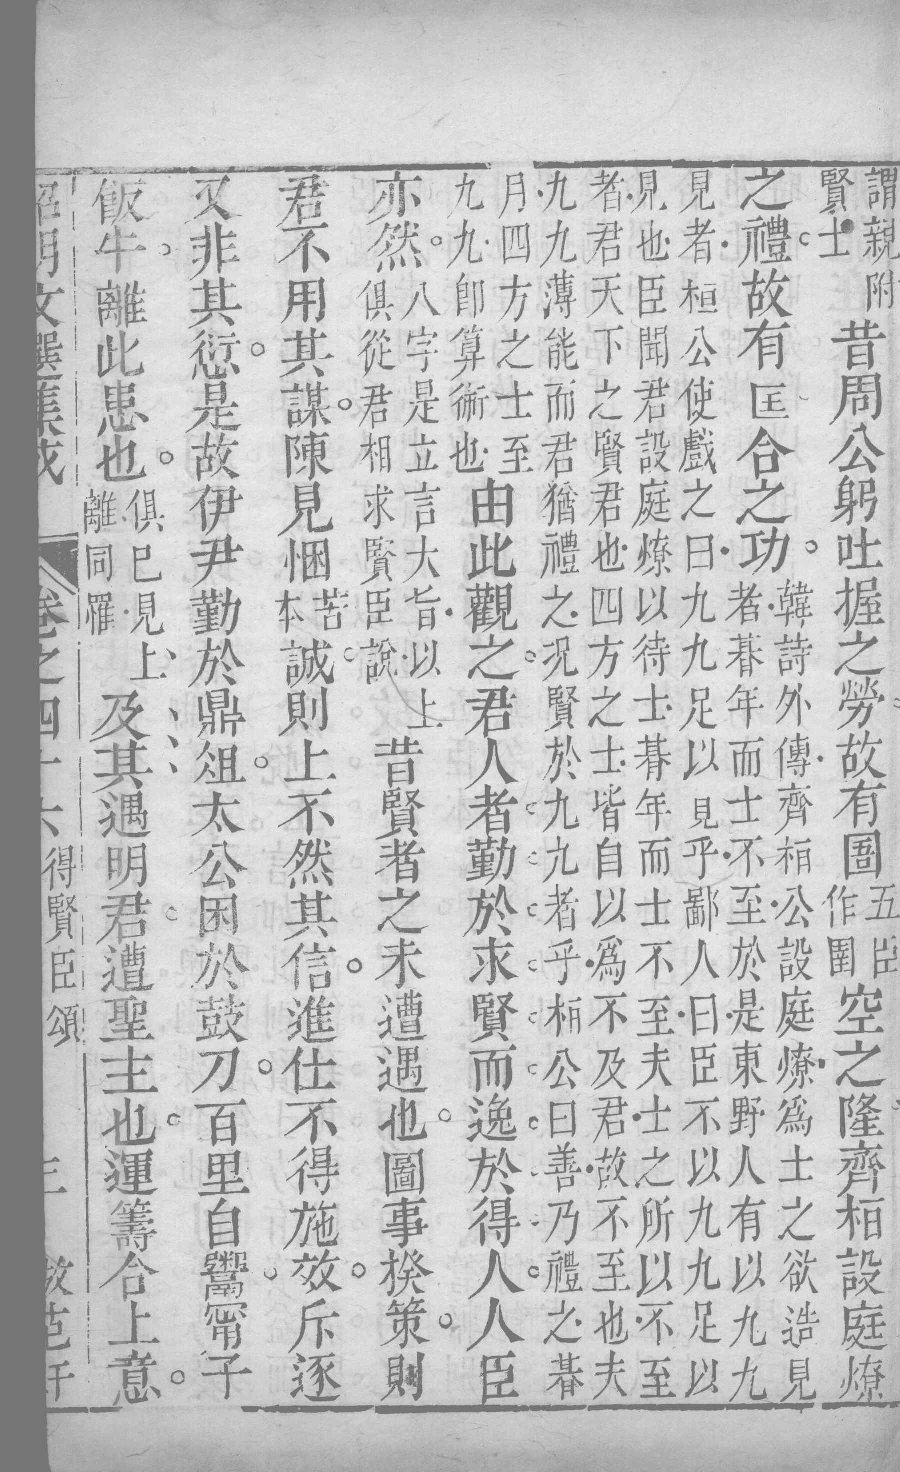 謂親附賢士昔周公躬吐握之勞故有圄五臣作圉空之隆齊桓設庭燎
之禮故有匡合之功韓詩外傳齊桓公設庭燎爲士之欲造見者朞年而士不至於是東野人有以九九
見者桓公使戲之曰九九足以見乎鄙人曰臣不以九九足以
見也臣聞君設庭燎以待士朞年而士不至夫士之所以不至
者君天下之賢君也四方之士皆自以爲不及君故不至也夫
九九薄能而君猶禮之況賢於九九者乎桓公曰善乃禮之朞
月四方之士至九九卽算術也由此觀之君人者勤於求賢而逸於得人人臣
亦然八字是立言大旨以上俱從君相求賢臣說昔賢者之未遭遇也圖事揆策則
君不用其謀陳見悃苦本誠則上不然其信進仕不得施效斥逐
又非其愆是故伊尹勤於鼎俎太公困於鼓刀百里自鬻甯子
飯牛離此患也俱巳見上離同罹及其遇明君遭聖主也運籌合上意
昭明文選集成 卷之四十六 得賢臣頌 三